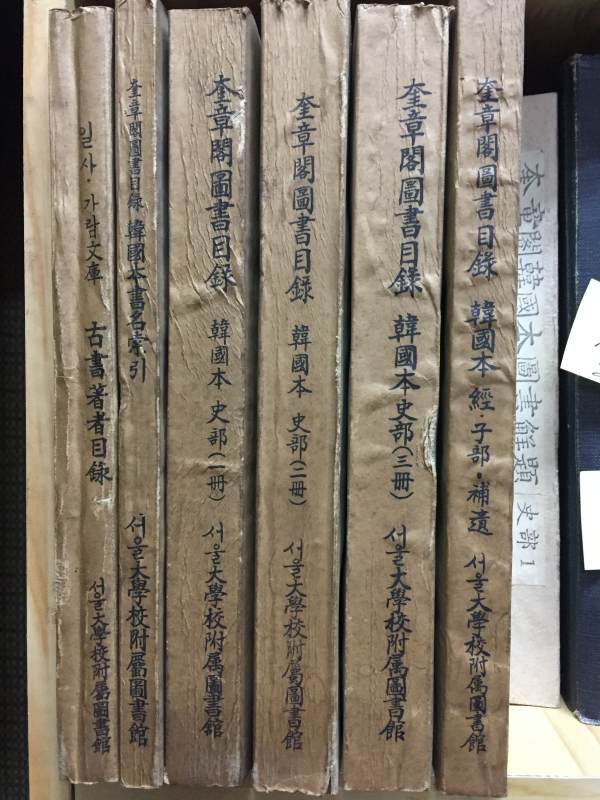 일사·가람文庫 古書著者目錄 서울大學校附屬圖書館
奎章閣圖書目錄 韓國本書名索引 서울大學校附屬圖書館
奎章閣圖書目錄 韓國本 史部(一冊) 서울大學校附属圖書館
奎章閣圖書目錄 韓國本 史部(二冊) 서울大學校附屬圖書館
奎章閣圖書目錄 韓國本史部(三冊) 서울大學校附属圖書館
奎章閣圖書目錄 韓國本 經·子部·補遺 서울大學校附属圖書館
奎章閣韓國本圖書解題 史部 1